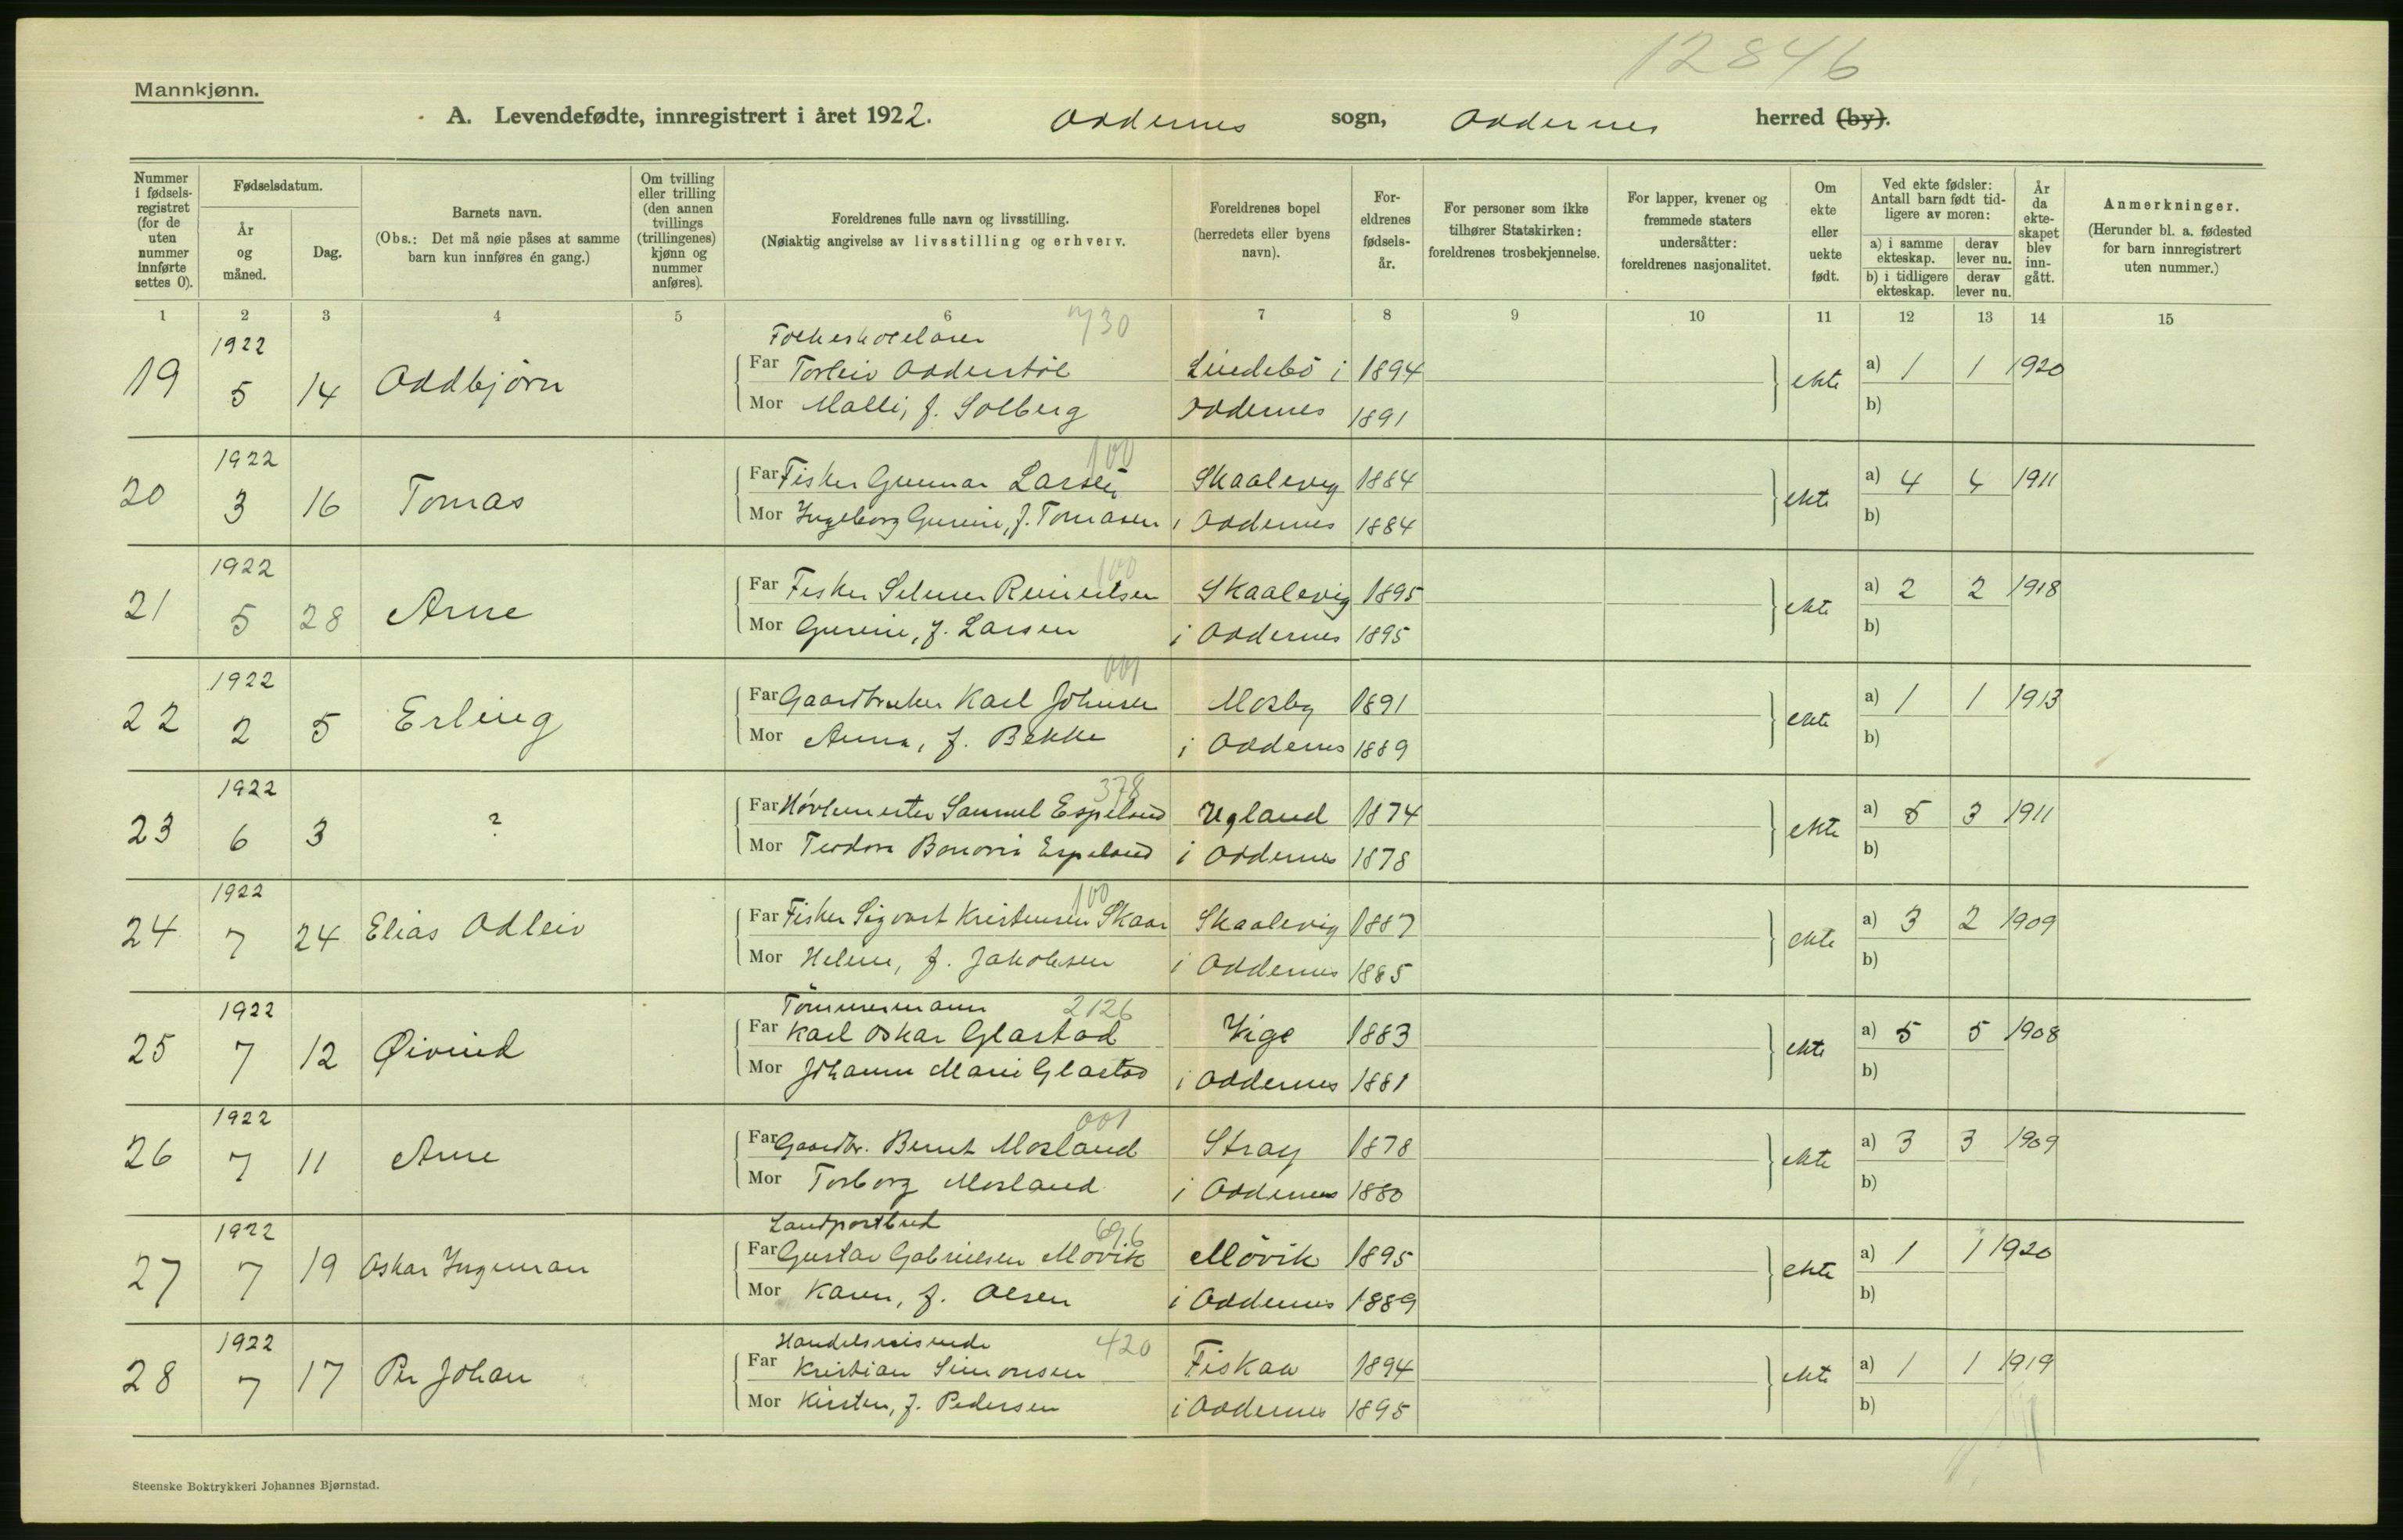 12846
Mannkjønn.
A. Levendefødte, innregistrert i året 1922. Oddernes sogn, Oddernes herred (by).
Nummer i fødselsregistret (for de uten nummer innførte settes 0).
Fødselsdatum.
År og måned.
Dag.
Barnets navn.
(Obs.: Det må nøie påses at samme barn kun innføres én gang.)
Om tvilling eller trilling (den annen tvillings (trillingenes) kjønn og nummer anføres).
Foreldrenes fulle navn og livsstilling.
(Nøiaktig angivelse av livsstilling og erhverv.
Foreldrenes bopel (herredets eller byens navn).
Foreldrenes fødselsår.
For personer som ikke tilhører Statskirken: foreldrenes trosbekjennelse.
For lapper, kvener og fremmede staters undersåtter: foreldrenes nasjonalitet.
Om ekte eller uekte født.
Ved ekte fødsler: Antall barn født tidligere av moren:
a) i samme ekteskap. derav lever nu.
b) i tidligere ekteskap. derav lever nu.
År da ekteskapet blev inngått.
Anmerkninger.
(Herunder bl. a. fødested for barn innregistrert uten nummer.)
1 2 3 4 5 6 7 8 9 10 11 12 13 14 15
1922 Folkeskolelærer 730
19 5 14 Oddbjørn Far Torleiv Odderstøl Lindebø i 1894 ekte a) 1 1 1920
Mor Malli, f. Solberg Oddernes 1891 b)
1922 100
20 3 16 Tomas Far Fisker Gunnar Larsen Skaalevig 1884 ekte a) 4 4 1911
Mor Ingeborg Gurine, f. Tomasen i Oddernes 1884 b)
1922 100
21 5 28 Arne Far Fisker Selmer Reinertsen Skaalevig 1895 ekte a) 2 2 1918
Mor Gurine, f. Larsen i Oddernes 1895 b)
1922 001
22 2 5 Erling Far Gaardbruker Karl Johnsen Mosby 1891 ekte a) 1 1 1913
Mor Anna, f. Bekke i Oddernes 1889 b)
1922 378
23 6 3 ? Far Høvlemester Samuel Espeland Ugland 1874 ekte a) 5 3 1911
Mor Teodora Espeland i Oddernes 1878 b)
1922 100
24 7 24 Elias Odleiv Far Fisker Sigvart Kristensen Skaar Skaalevig 1887 ekte a) 3 2 1909
Mor Helene, f. Jakobsen i Oddernes 1885 b)
1922 Tømmermann 2126
25 7 12 Øivind Far Karl Oskar Glastad Vige 1883 ekte a) 5 5 1908
Mor Johanne Marie Glastad i Oddernes 1881 b)
1922 001
26 7 11 Arne Far Gaardbr. Bernt Mosland Stray 1878 ekte a) 3 3 1909
Mor Torborg Mosland i Oddernes 1880 b)
1922 Landpostbud 696
27 7 19 Oskar Ingeman Far Gustav Gabrielsen Møvik Møvik 1895 ekte a) 1 1 1920
Mor Karen, f. Olsen i Oddernes 1889 b)
1922 Handelsreisende 420
28 7 17 Per Johan Far Kristian Simonsen Fiskaa 1894 ekte a) 1 1 1919
Mor Kirsten, f. Pedersen i Oddernes 1895 b)
Steenske Boktrykkeri Johannes Bjørnstad.